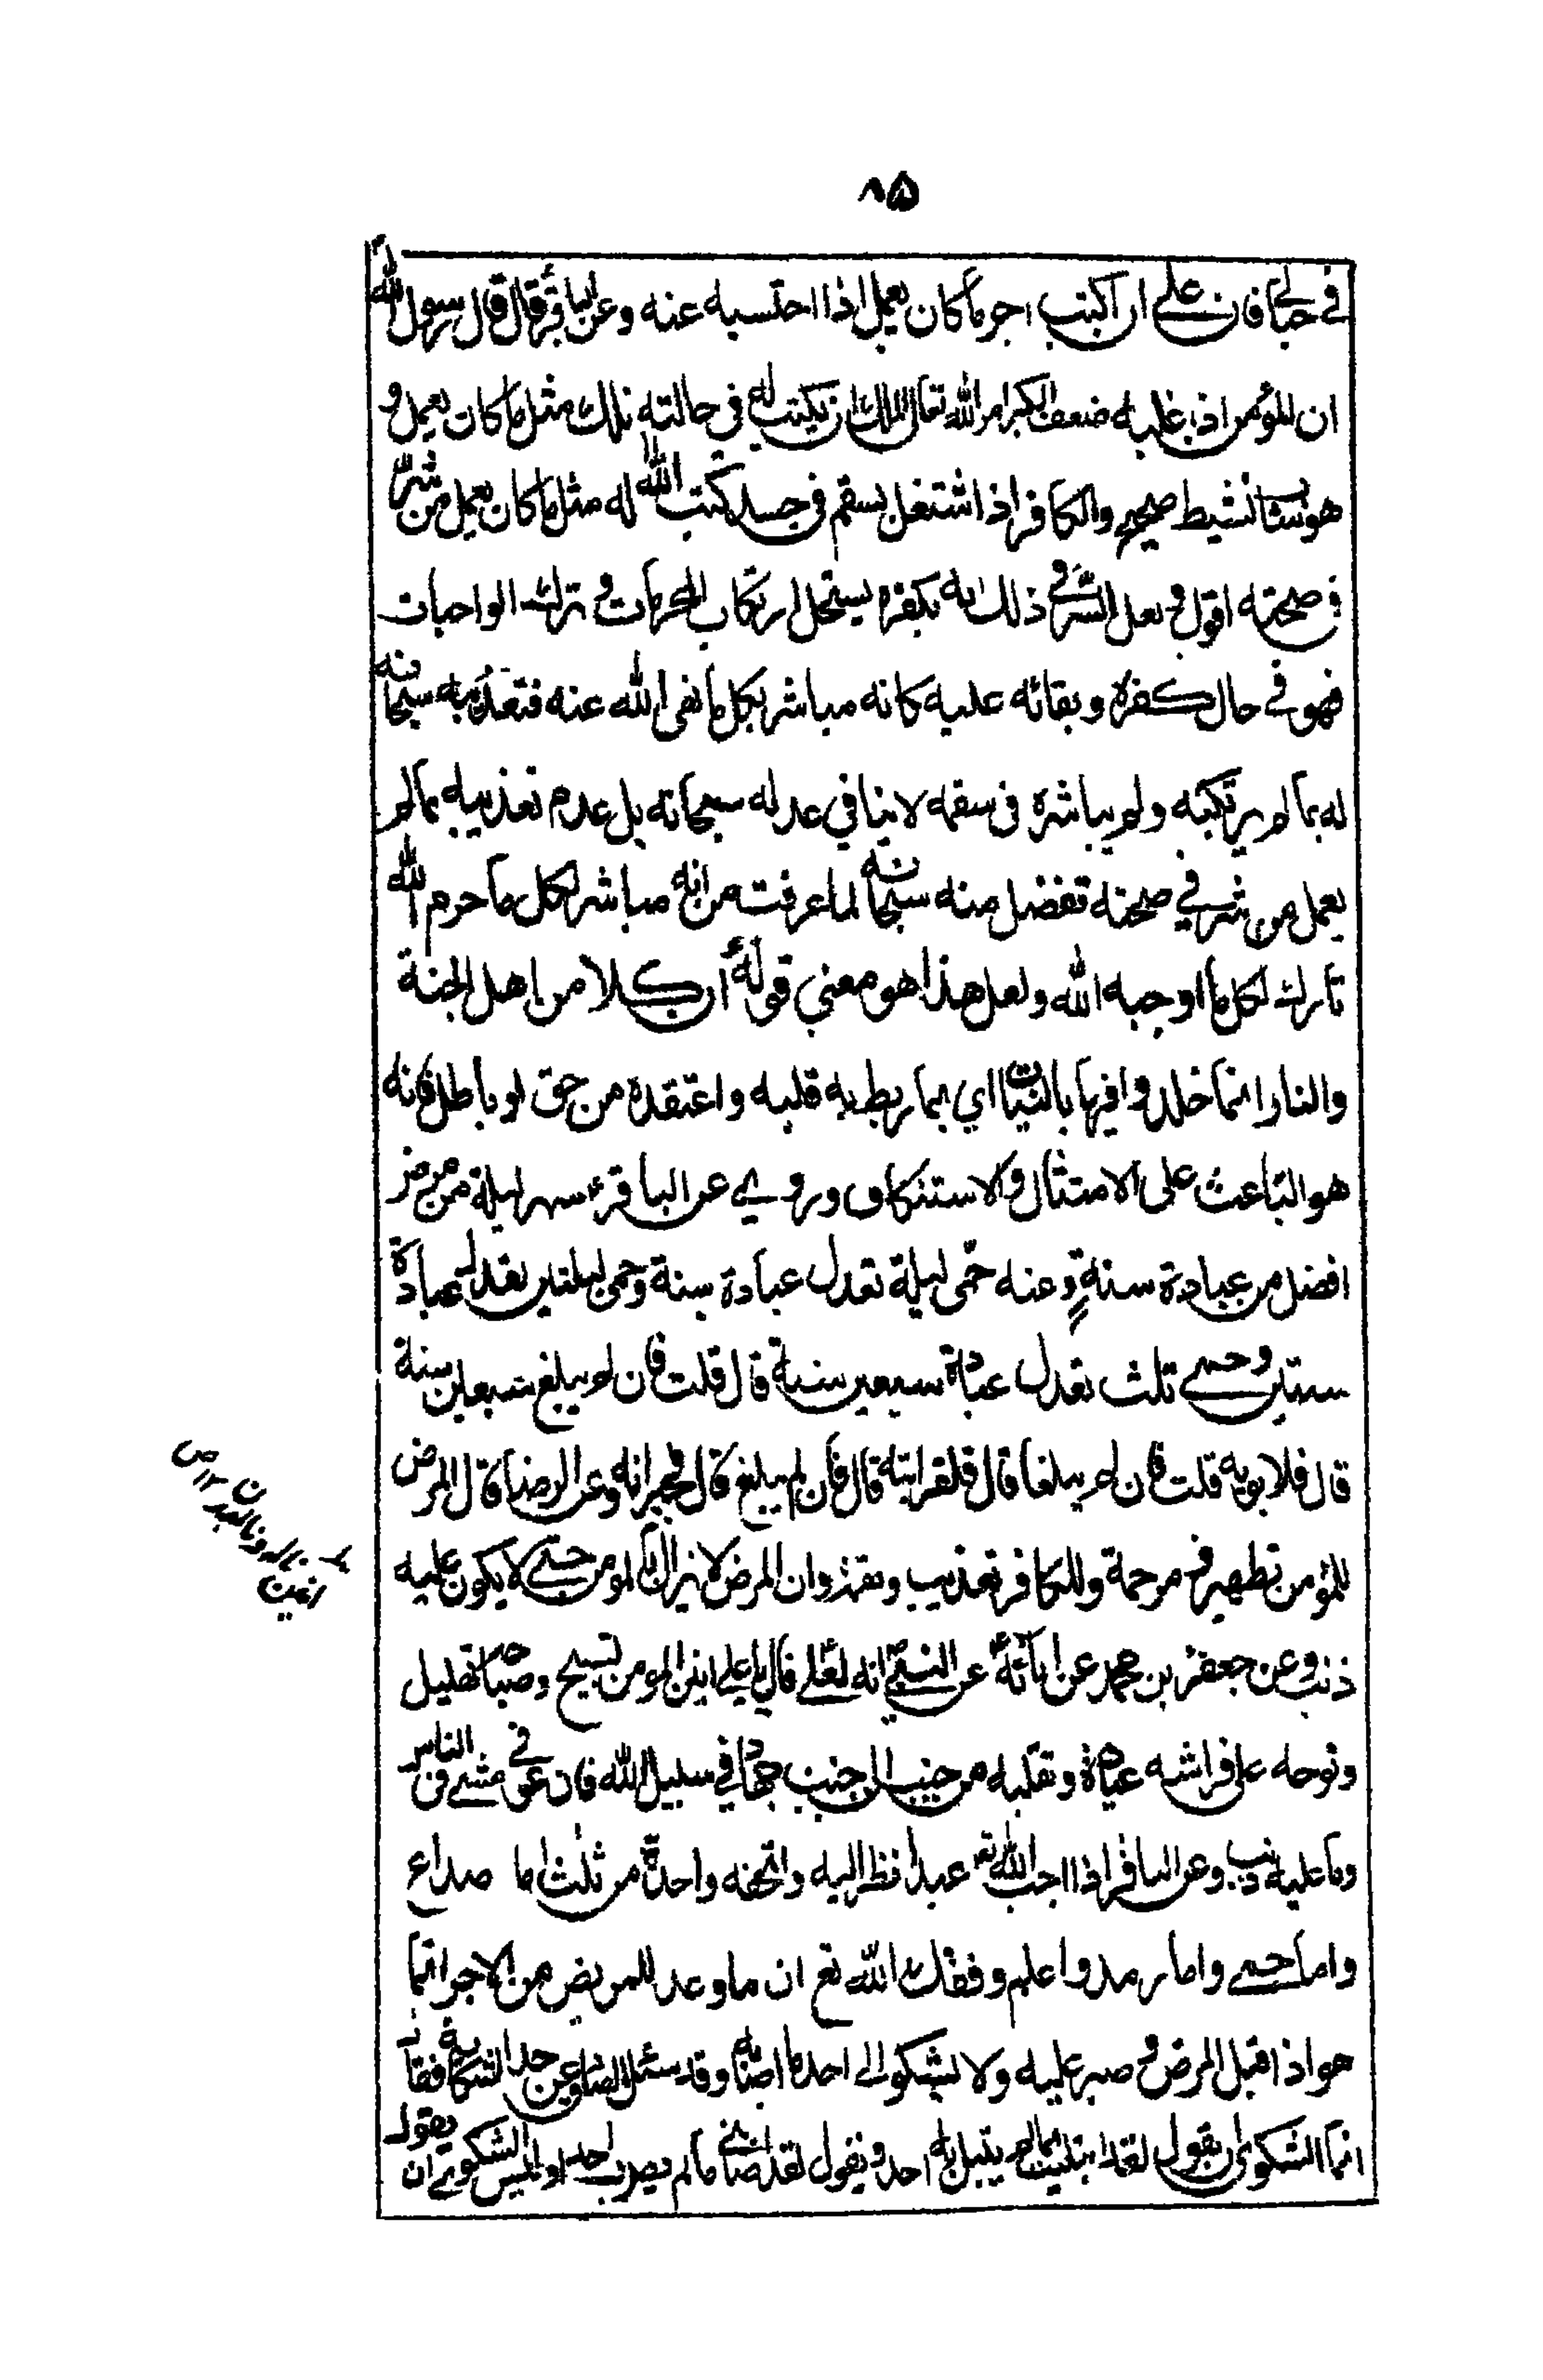 ٨۵
في حبالي فان علي ان اكتب اجر ما كان يعمل اذا احتسبه عنه وعن الباقرؑ قال قال رسول الله
ان المؤمن اذا غلبه ضعف الكبر امر الله تعالى الملك ان يكتب له في حالته تلك مثل ما كان يعمل و
هو شاب نشيط صحيح والكافر اذا اشتغل بسقم في جسده كتب الله له مثل ما كان يعمل من شر
في صحته اقول ولعل السر في ذلك انه بكفره يستحل ارتكاب المحرمات و ترك الواجبات
فهو في حال كفره وبقائه عليه كانه مباشر بكل ما نهى الله عنه فتعذيبه سبحانه
له بما لم يرتكبه ولم يباشره في سقمه لا ينافي عدله سبحانه بل عدم تعذيبه بما لم
يعمل من شر في صحته تفضل منه سبحانه لما عرفت من انه مباشر لكل ما حرم الله
تارك لكل ما اوجبه الله ولعل هذا هو معنى قولهؑ ان كلا من اهل الجنة
والنار انما خلدوا فيها بالنيات اي بما ربط به قلبه واعتقده من حق او باطل فانه
هو الباعث على الامتثال والاستنكاف وروي عن الباقرؑ سهر ليلة من مرض
افضل من عبادة سنة وعنه حمّى ليلة تعدل عبادة سنة وحمى ليلتين تعدل عبادة
سنتين وحمى ثلث تعدل عبادة سبعين سنة قال قلت فان لم يبلغ سبعين سنة
قال فلابويه قلت فان لم يبلغا قال فلقرابته قال فان لم يبلغ قال فجيرانه وعن الرضا قال المرض
للمؤمن تطهير و مرحمة وللكافر تعذيب و وان المرض لا يزال بالمومن حتى لا يكون عليه
ذنب وعن جعفرؑ بن محمد عن ابائهؑ عن النبي انه لعلي قال يا علي انين المومن تسبيح وصياحه تهليل
ونومه على فراشه عبادة وتقلبه من جنب الى جنب جهاد في سبيل الله فان عوفي مشى في الناس
وما عليه ذنب وعن الباقر اذا احب الله تعـ عبدا نظر اليه واتحفه واحدة من ثلث اما صداع
واما حمى واما رمد واعلم وفقك الله تع ان ما وعد للمريض من الاجر انما
هو اذا قبل المرض و صبر عليه ولا يشكو الى احد ما اصابه وقد سئل الصادق عن حد الشكاية فقال
انما الشكوى ان يقول لقد ابتليت بما لم يبتل به احد و يقول لقد اصابني ما لم يصب احدا وليس الشكوى ان يقول